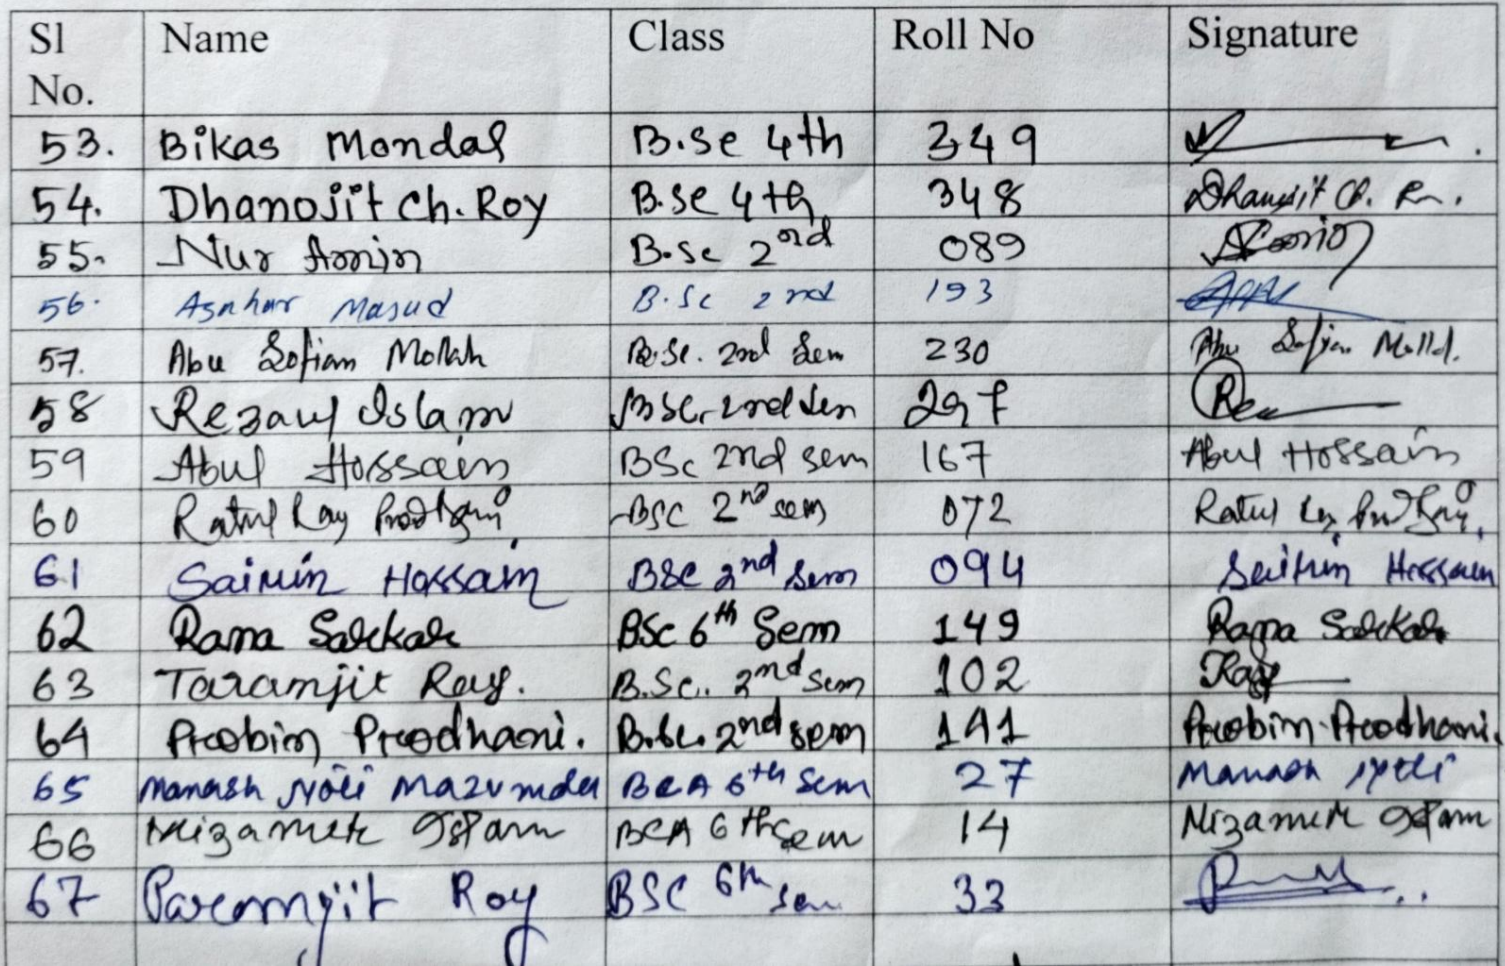 Sl No. Name Class Roll No Signature
53. Bikas Mondal B.Sc 4th 349
54. Dhanojit Ch. Roy B.Sc 4th 348 Dhanojit Ch. R
55. Nur Amin B.Sc 2nd 089
56. Masud B.Sc 2nd 193
57. Abu Sofian Mollah B.Sc. 2nd Sem 230 Abu Sofian Molla.
58 Rezaul Islam BSc. 2nd Sem 297
59 Abul Hossain BSc 2nd sem 167 Abul Hossain
60 Ratul Ray Prodhani BSC 2nd sem 072 Ratul Ray Prodhani
61 Hossain BSC 2nd Sem 094 Hossain
62 Rana Sarkar BSc 6th Sem 149 Rana Sarkar
63 Taramjit Ray. B.Sc. 2nd Sem 102 Ray
64 Probin Prodhani. B.Sc. 2nd sem 141 Probin Prodhani.
65 Manash Mazumder BCA 6th Sem 27 Manash
66 Islam BCA 6th Sem 14 Islam
67 Paramjit Roy BSC 6th Sem 33